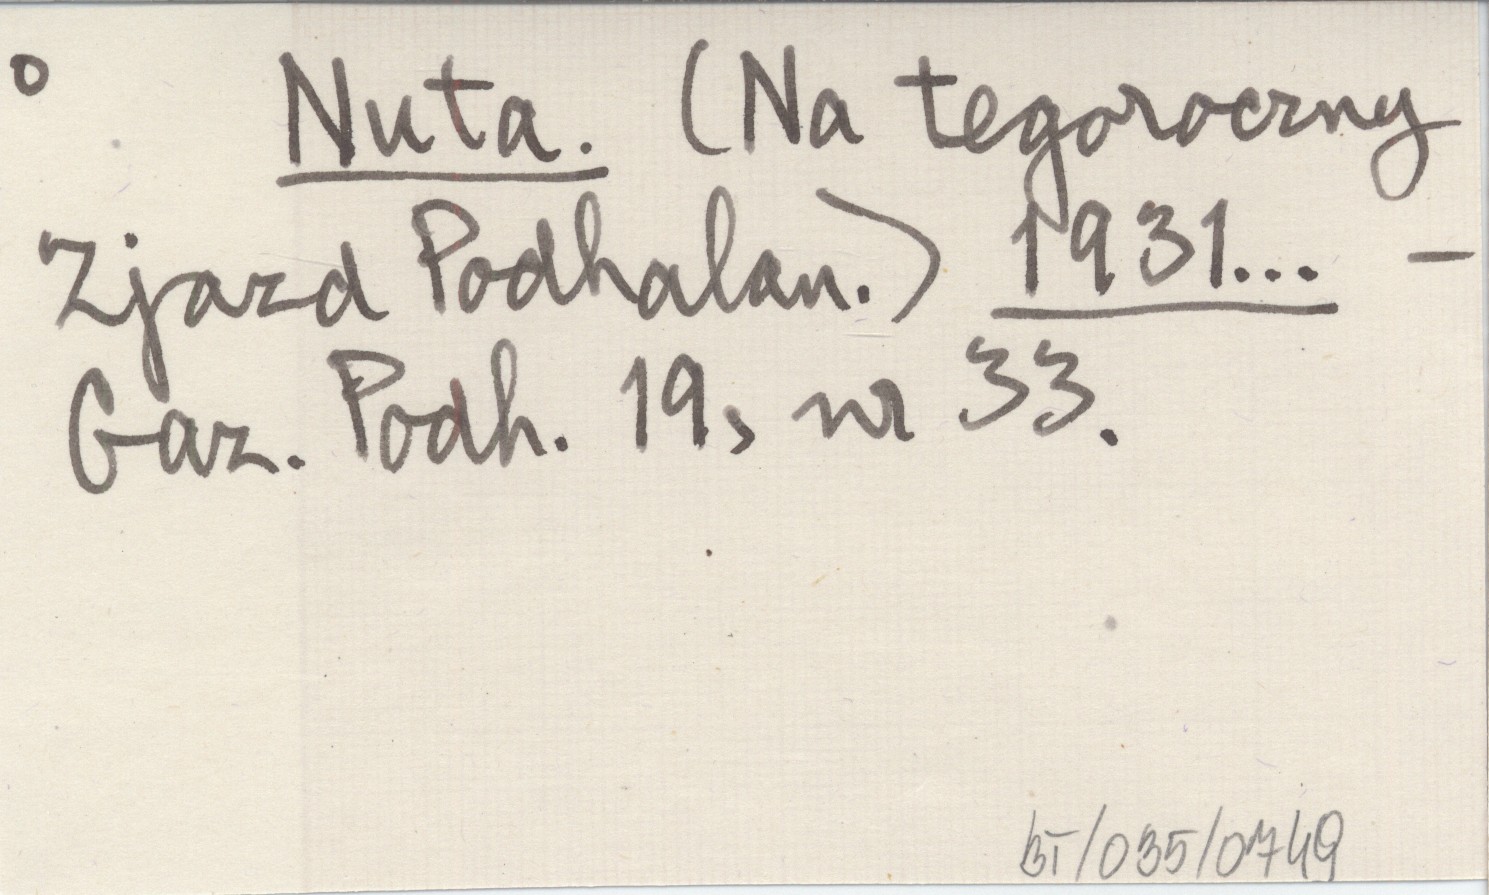 o Nuta. (Na tegoroczny
Zjazd Podhalan.) 1931... –
Gaz. Podh. 19, nr 33.
BT/035/0749